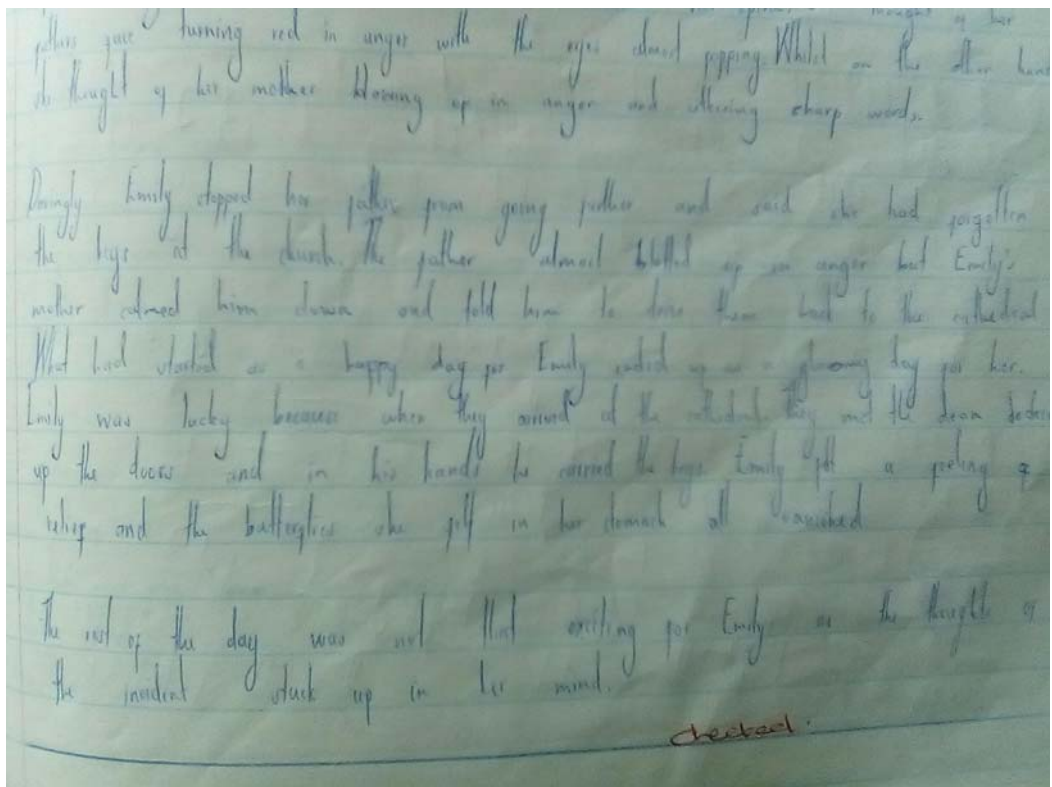 thought of her
fathers face turning red in anger with the eyes almost popping. Whilst on the other hand
she thought of her mother blowing up in anger and uttering sharp words.
Daringly Emily stopped her father from going further and said she had forgotten
the keys at the church. The father almost up in anger but Emily's
mother calmed him down and told him to drive them back to the cathedral
What had started as a happy day for Emily ended up as a gloomy day for her.
Emily was lucky because when they arrived at the cathedral they met the dean
up the doors and in his hands he carried the keys. Emily felt a feeling of
relief and the butterflies she felt in her stomach all vanished
The rest of the day was not that exciting for Emily as the thoughts of
the incident stuck up in her mind.
checked.